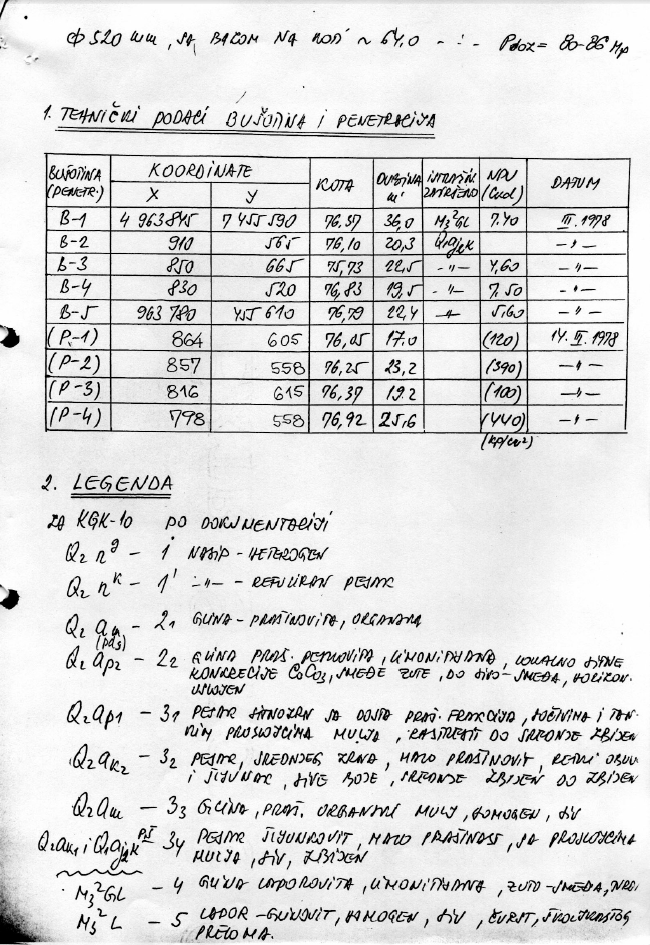 Φ 520 mm, SA BAZOM NA KOTI ~ 64,0 - :- Pdoz = 80-86 Mp
1. TEHNIČKI PODACI BUŠOTINA I PENETRACIJA
BUŠOTINA (PENETR.) KOORDINATE X Y KOTA DUBINA m' NPV (Cucl) DATUM
B-1 4 963 845 7 455 590 76,37 36,0 M₃²GL 7.40 III. 1978
B-2 910 565 76,10 20,3 Q1ajk -"-
B-3 850 665 75,73 22,5 -"- 4,60 -"-
B-4 830 520 76,83 19,5 -"- 7.50 -"-
B-5 963 780 455 610 76,79 22,4 -"- 5.60 -"-
(P-1) 864 605 76,05 17.0 (120) 14. III. 1978
(P-2) 857 558 76,25 23,2 (390) -"-
(P-3) 816 615 76,37 19.2 (100) -"-
(P-4) 798 558 76,92 25,6 (440) -"-
(kp/cm²)
2. LEGENDA
ZA KGK-10 PO DOKUMENTACIJI
Q₂ n^g - 1 NASIP - HETEROGEN
Q₂ n^k - 1' -:"- - REFULIRAN PESAK
Q₂ am (pds) - 2₁ GLINA - PRAŠINOVITA, ORGANSKA
Q₂ ap₂ - 2₂ GLINA PRAŠ. PESKOVITA, LIMONITISANA, LOKALNO SITNE
KONKRECIJE CaCO₃, SMEĐE ŽUTE, DO SIVO-SMEĐA, HORIZON.
USLOJEN
Q₂ap₁ - 3₁ PESAK SITNOZRN SA DOSTA PRAŠ. FRAKCIJA, SOČIVIMA I TAN-
NIM PROSLOJCIMA MULJA, RASTRESIT DO SREDNJE ZBIJEN
Q₂ak₂ - 3₂ PESAK, SREDNJEG ZRNA, MALO PRAŠINOVIT, RETKI
I ŠLJUNAK, SIVE BOJE, SREDNJE ZBIJEN DO ZBIJEN
Q₂am - 3₃ GLINA, PRAŠ. ORGANSKI MULJ, HOMOGEN, SIV
Q₂ak₁ i Q₁ajk - 3₄ PESAK ŠLJUNKOVIT, MALO PRAŠINAST, SA PROSLOJCIMA
MULJA, SIV, ZBIJEN
M₃²GL - 4 GLINA LAPOROVITA, LIMONITISANA, ŽUTO-SMEĐA,
M₃²L - 5 LAPOR - GLINOVIT, HOMOGEN, SIV, ČVRST, ŠKOLJKASTOG
PRELOMA.